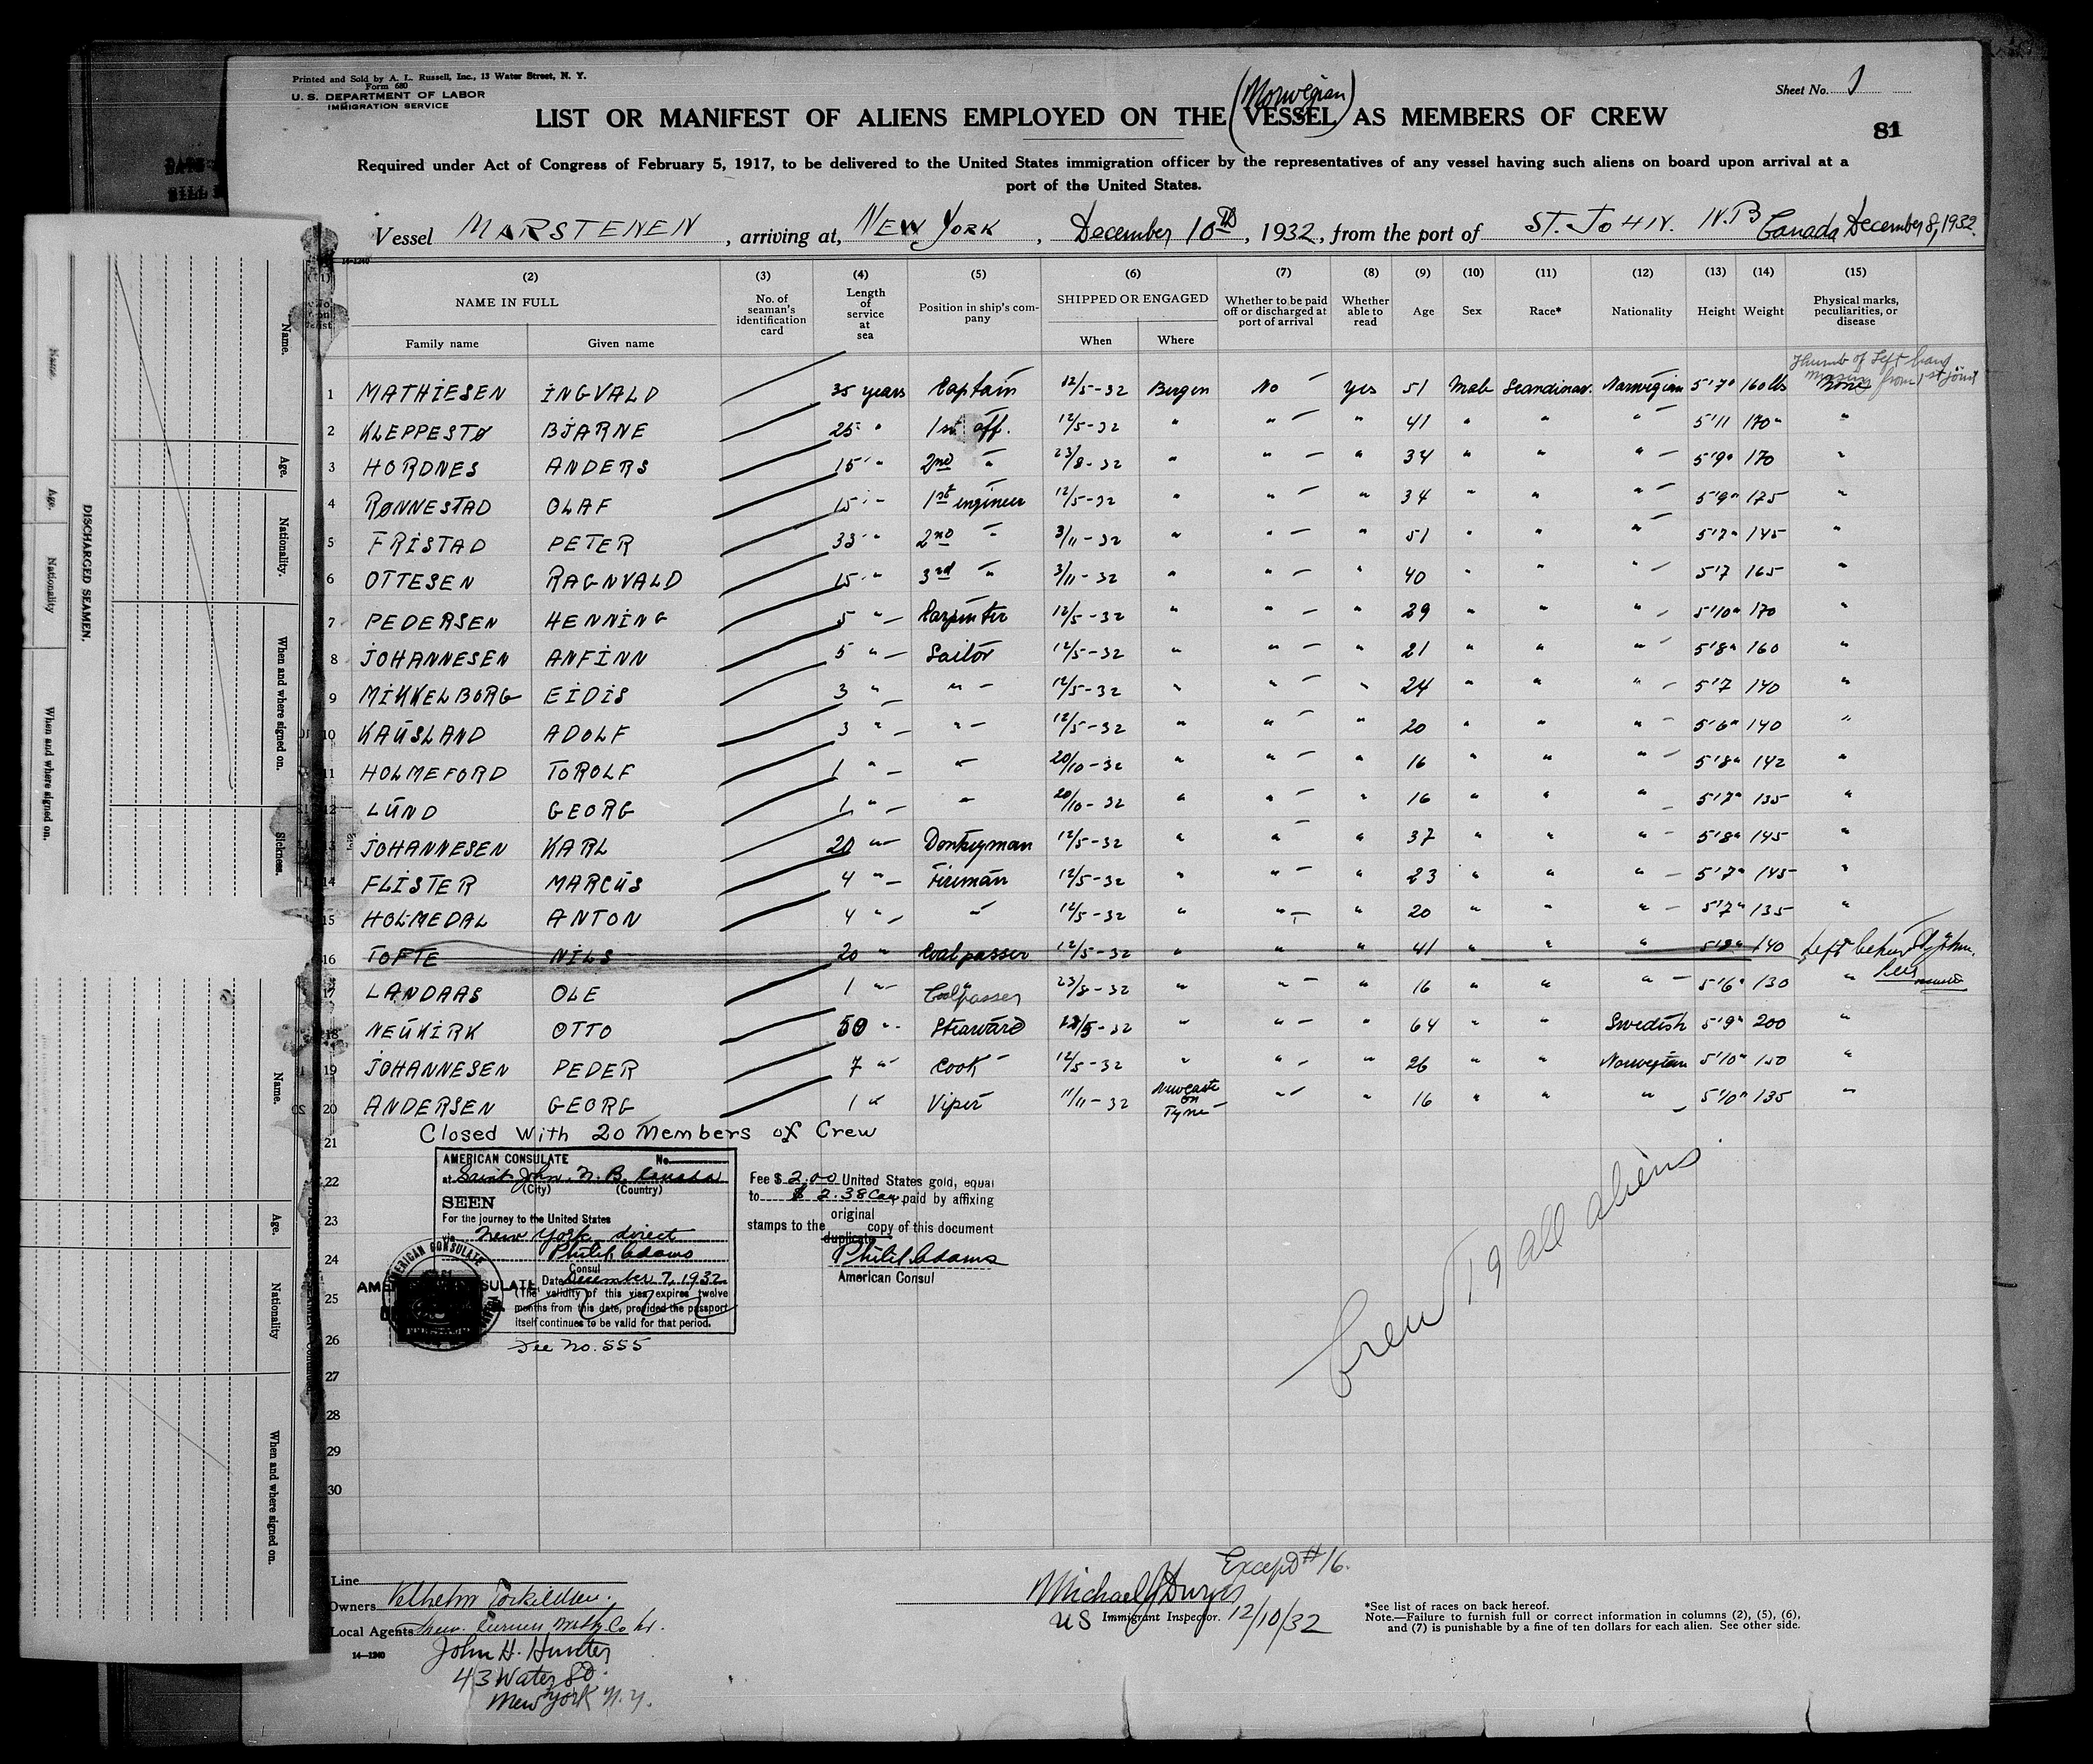 Printed and Sold by A. L. Russell, Inc., 13 Water Street, N. Y.
Form 680
U. S. DEPARTMENT OF LABOR
IMMIGRATION SERVICE
Sheet No. 1
(Norwegian)
LIST OR MANIFEST OF ALIENS EMPLOYED ON THE VESSEL AS MEMBERS OF CREW
81
Required under Act of Congress of February 5, 1917, to be delivered to the United States immigration officer by the representatives of any vessel having such aliens on board upon arrival at a
port of the United States.
Vessel MARSTENEN, arriving at, NEW YORK, December 10th, 1932, from the port of ST. JOHN. N.B Canada December 8, 1932.
14-1240
(1) (2) (3) (4) (5) (6) (7) (8) (9) (10) (11) (12) (13) (14) (15)
No. on list NAME IN FULL Family name Given name No. of seaman's identification card Length of service at sea Position in ship's company SHIPPED OR ENGAGED When Where Whether to be paid off or discharged at port of arrival Whether able to read Age Sex Race* Nationality Height Weight Physical marks, peculiarities, or disease
Thumb of left hand
missing from 1st joint
1 MATHIESEN INGVALD 35 years Captain 12/5-32 Bergen No yes 51 Male Scandinav. Norwegian 5'7" 160 lbs None
2 KLEPPESTØ BJARNE 25 " 1st off. 12/5-32 " " " 41 " " " 5'11 170 "
3 HORDNES ANDERS 15 " 2nd " 23/8-32 " " " 34 " " " 5'9" 170 "
4 RØNNESTAD OLAF 15 " 1st engineer 12/5-32 " " " 34 " " " 5'9" 175 "
5 FRISTAD PETER 33 " 2nd " 3/11-32 " " " 51 " " " 5'7" 145 "
6 OTTESEN RAGNVALD 15 " 3rd " 3/11-32 " " " 40 " " " 5'7 165 "
7 PEDERSEN HENNING 5 " Carpenter 12/5-32 " " " 29 " " " 5'10" 170 "
8 JOHANNESEN ANFINN 5 " Sailor 12/5-32 " " " 21 " " " 5'8" 160 "
9 MIKKELBORG EIDIS 3 " " 12/5-32 " " " 24 " " " 5'7 140 "
10 KAŪSLAND ADOLF 3 " " 12/5-32 " " " 20 " " " 5'6" 140 "
11 HOLMEFORD TOROLF 1 " " 20/10-32 " " " 16 " " " 5'8" 142 "
12 LŪND GEORG 1 " " 20/10-32 " " " 16 " " " 5'7" 135 "
13 JOHANNESEN KARL 20 " Donkeyman 12/5-32 " " " 37 " " " 5'8" 145 "
14 FLISTER MARCŪS 4 " Fireman 12/5-32 " " " 23 " " " 5'7" 145 "
15 HOLMEDAL ANTON 4 " " 12/5-32 " " " 20 " " " 5'7" 135 "
16 TOFTE NILS 20 " Coalpasser 12/5-32 " " " 41 " " " 140 Left behind St John.
17 LANDAAS OLE 1 " Coalpasser 23/8-32 " " " 16 " " " 5'6" 130 "
18 NEŪKIRK OTTO 50 " Steward 12/5-32 " " " 64 " " Swedish 5'9" 200 "
19 JOHANNESEN PEDER 7 " Cook 12/5-32 " " " 26 " " Norwegian 5'10" 150 "
20 ANDERSEN GEORG 1 " Viper 11/11-32 Newcastle on Tyne " " 16 " " " 5'10" 135 "
21 Closed with 20 Members of Crew
22
23
24
25
26
27
28
29
30
AMERICAN CONSULATE No.
at Saint John. N. B. Canada
(City) (Country)
SEEN
For the journey to the United States
via New York direct
Philip Adams
Consul
Date December 7, 1932
(The validity of this visa expires twelve
months from this date, provided the passport
itself continues to be valid for that period.
Fee No. 555
AMERICAN CONSULATE
Fee $ 2.00 United States gold, equal
to $ 2.38 Can. paid by affixing
original
stamps to the copy of this document
duplicate
Philip Adams
American Consul
Crew 19 all aliens
Line
Owners Vilhelm Torkildsen.
Local Agents
John H. Hunter
43 Water St.
New York N.Y.
14-1240
Except #16.
Michael J Dwyer
US Immigrant Inspector. 12/10/32
*See list of races on back hereof.
Note.—Failure to furnish full or correct information in columns (2), (5), (6),
and (7) is punishable by a fine of ten dollars for each alien. See other side.
DISCHARGED SEAMEN.
Name.
Age.
Nationality.
When and where signed on.
Sickness.
Name.
Age.
Nationality
When and where signed on.
Name.
Age.
Nationality
When and where signed on.